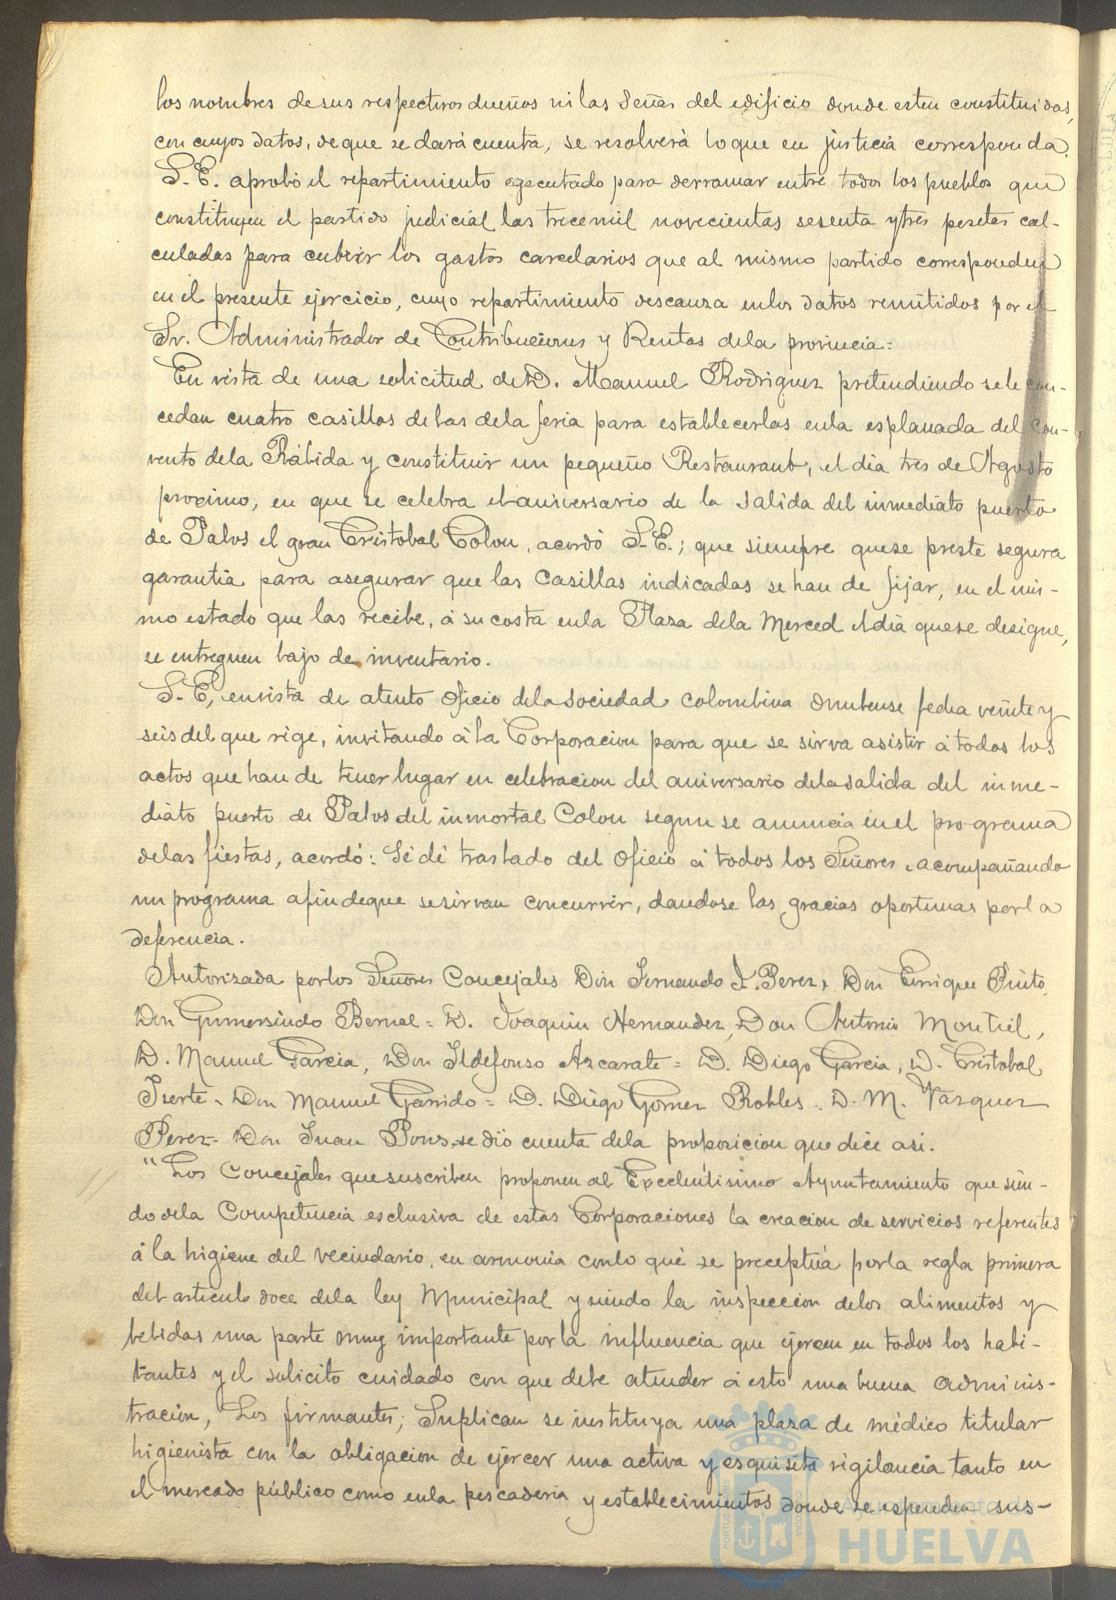 los nombres de sus respectivos dueños ni las señas del edificio donde esten constituidas,
con cuyos datos, de que se dará cuenta, se resolverá lo que en justicia corresponda.
S. E. aprobó el repartimiento egecutado para derramar entre todos los pueblos que
constituyen el partido judicial las trece mil novecientas sesenta y tres pesetas cal-
culadas para cubrir los gastos carcelarios que al mismo partido corresponden
en el presente ejercicio, cuyo repartimiento descanza en los datos remitidos por el
Sr. Administrador de Contribuciones y Rentas de la provincia=
En vista de una solicitud de D. Manuel Rodriguez pretendiendo se le con-
cedan cuatro casillas de las de la feria para establecerlas en la esplanada del Con-
vento de la Rábida y constituir un pequeño Restaurant, el dia tres de Agosto
procsimo, en que se celebra el aniversario de la salida del inmediato puerto
de Palos el gran Cristobal Colon, acordó S. E.; que siempre que se preste segura
garantia para asegurar que las casillas indicadas se han de fijar, en el mis-
mo estado que las recibe, á su costa en la Plaza de la Merced el dia que se designe,
se entreguen bajo de inventario.
S. E, en vista de atento oficio de la Sociedad Colombina Onubense fecha veinte y
seis del que rige, invitando á la Corporacion para que se sirva asistir á todos los
actos que han de tener lugar en celebracion del aniversario de la salida del inme-
diato puerto de Palos del inmortal Colon segun se anuncia en el programa
de las fiestas, acordó: Se dé traslado del oficio á todos los Señores, acompañando
un programa a fin de que se sirvan concurrir, dandose las gracias oportunas por la
deferencia.
Autorizada por los Señores Concejales Don Fernando I. Perez, Don Enrique Pinto,
Don Gumersindo Bernal= D. Joaquin Hernandez, Don Antonio Montiel,
D. Manuel Garcia, Don Ildefonso Azcarate= D. Diego Garcia, D. Cristobal
Don Manuel Garrido= D. Diego Gomez Robles. D. M. Vazquez
Perez- Don Juan Pons, se dió cuenta de la proposicion que dice asi.
"Los Concejales que suscriben proponen al Excelentisimo Ayuntamiento que sien-
do de la Competencia esclusiva de estas Corporaciones la creacion de servicios referentes
á la higiene del vecindario, en armonia con lo que se preceptúa por la regla primera
del articulo doce de la ley Municipal y siendo la inspeccion de los alimentos y
bebidas una parte muy importante por la influencia que ejercen en todos los habi-
tantes y el solicito cuidado con que debe atender á esto una buena adminis-
tracion, Los firmantes; Suplican se instituya una plaza de médico titular
higienista con la obligacion de ejercer una activa y esquisita vigilancia tanto en
el mercado público como en la pescaderia y establecimientos donde se espenden sus-
Ayuntamiento de
HUELVA